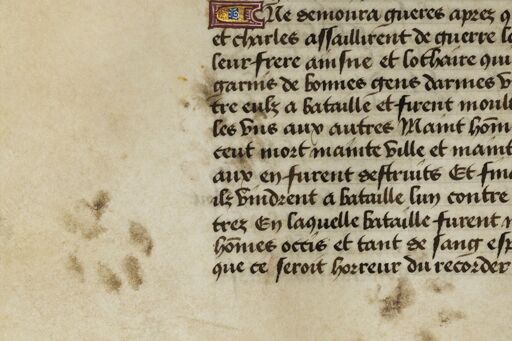 Ne demoura gueres aprez q
et charles assaillirent de guerre l
leur frere aisne et lothaire qui
garnis de bonnes gens darmes v
tre eulz a bataille et firent moult
les vns aux autres Maint hõm
ceut mort mainte ville et maint
aux en furent destruits Et fina
ilz vindrent a bataille lun contre
trez En laquelle bataille furent
hõmes occis et tant de sang esp
que ce seroit horreur du recorder